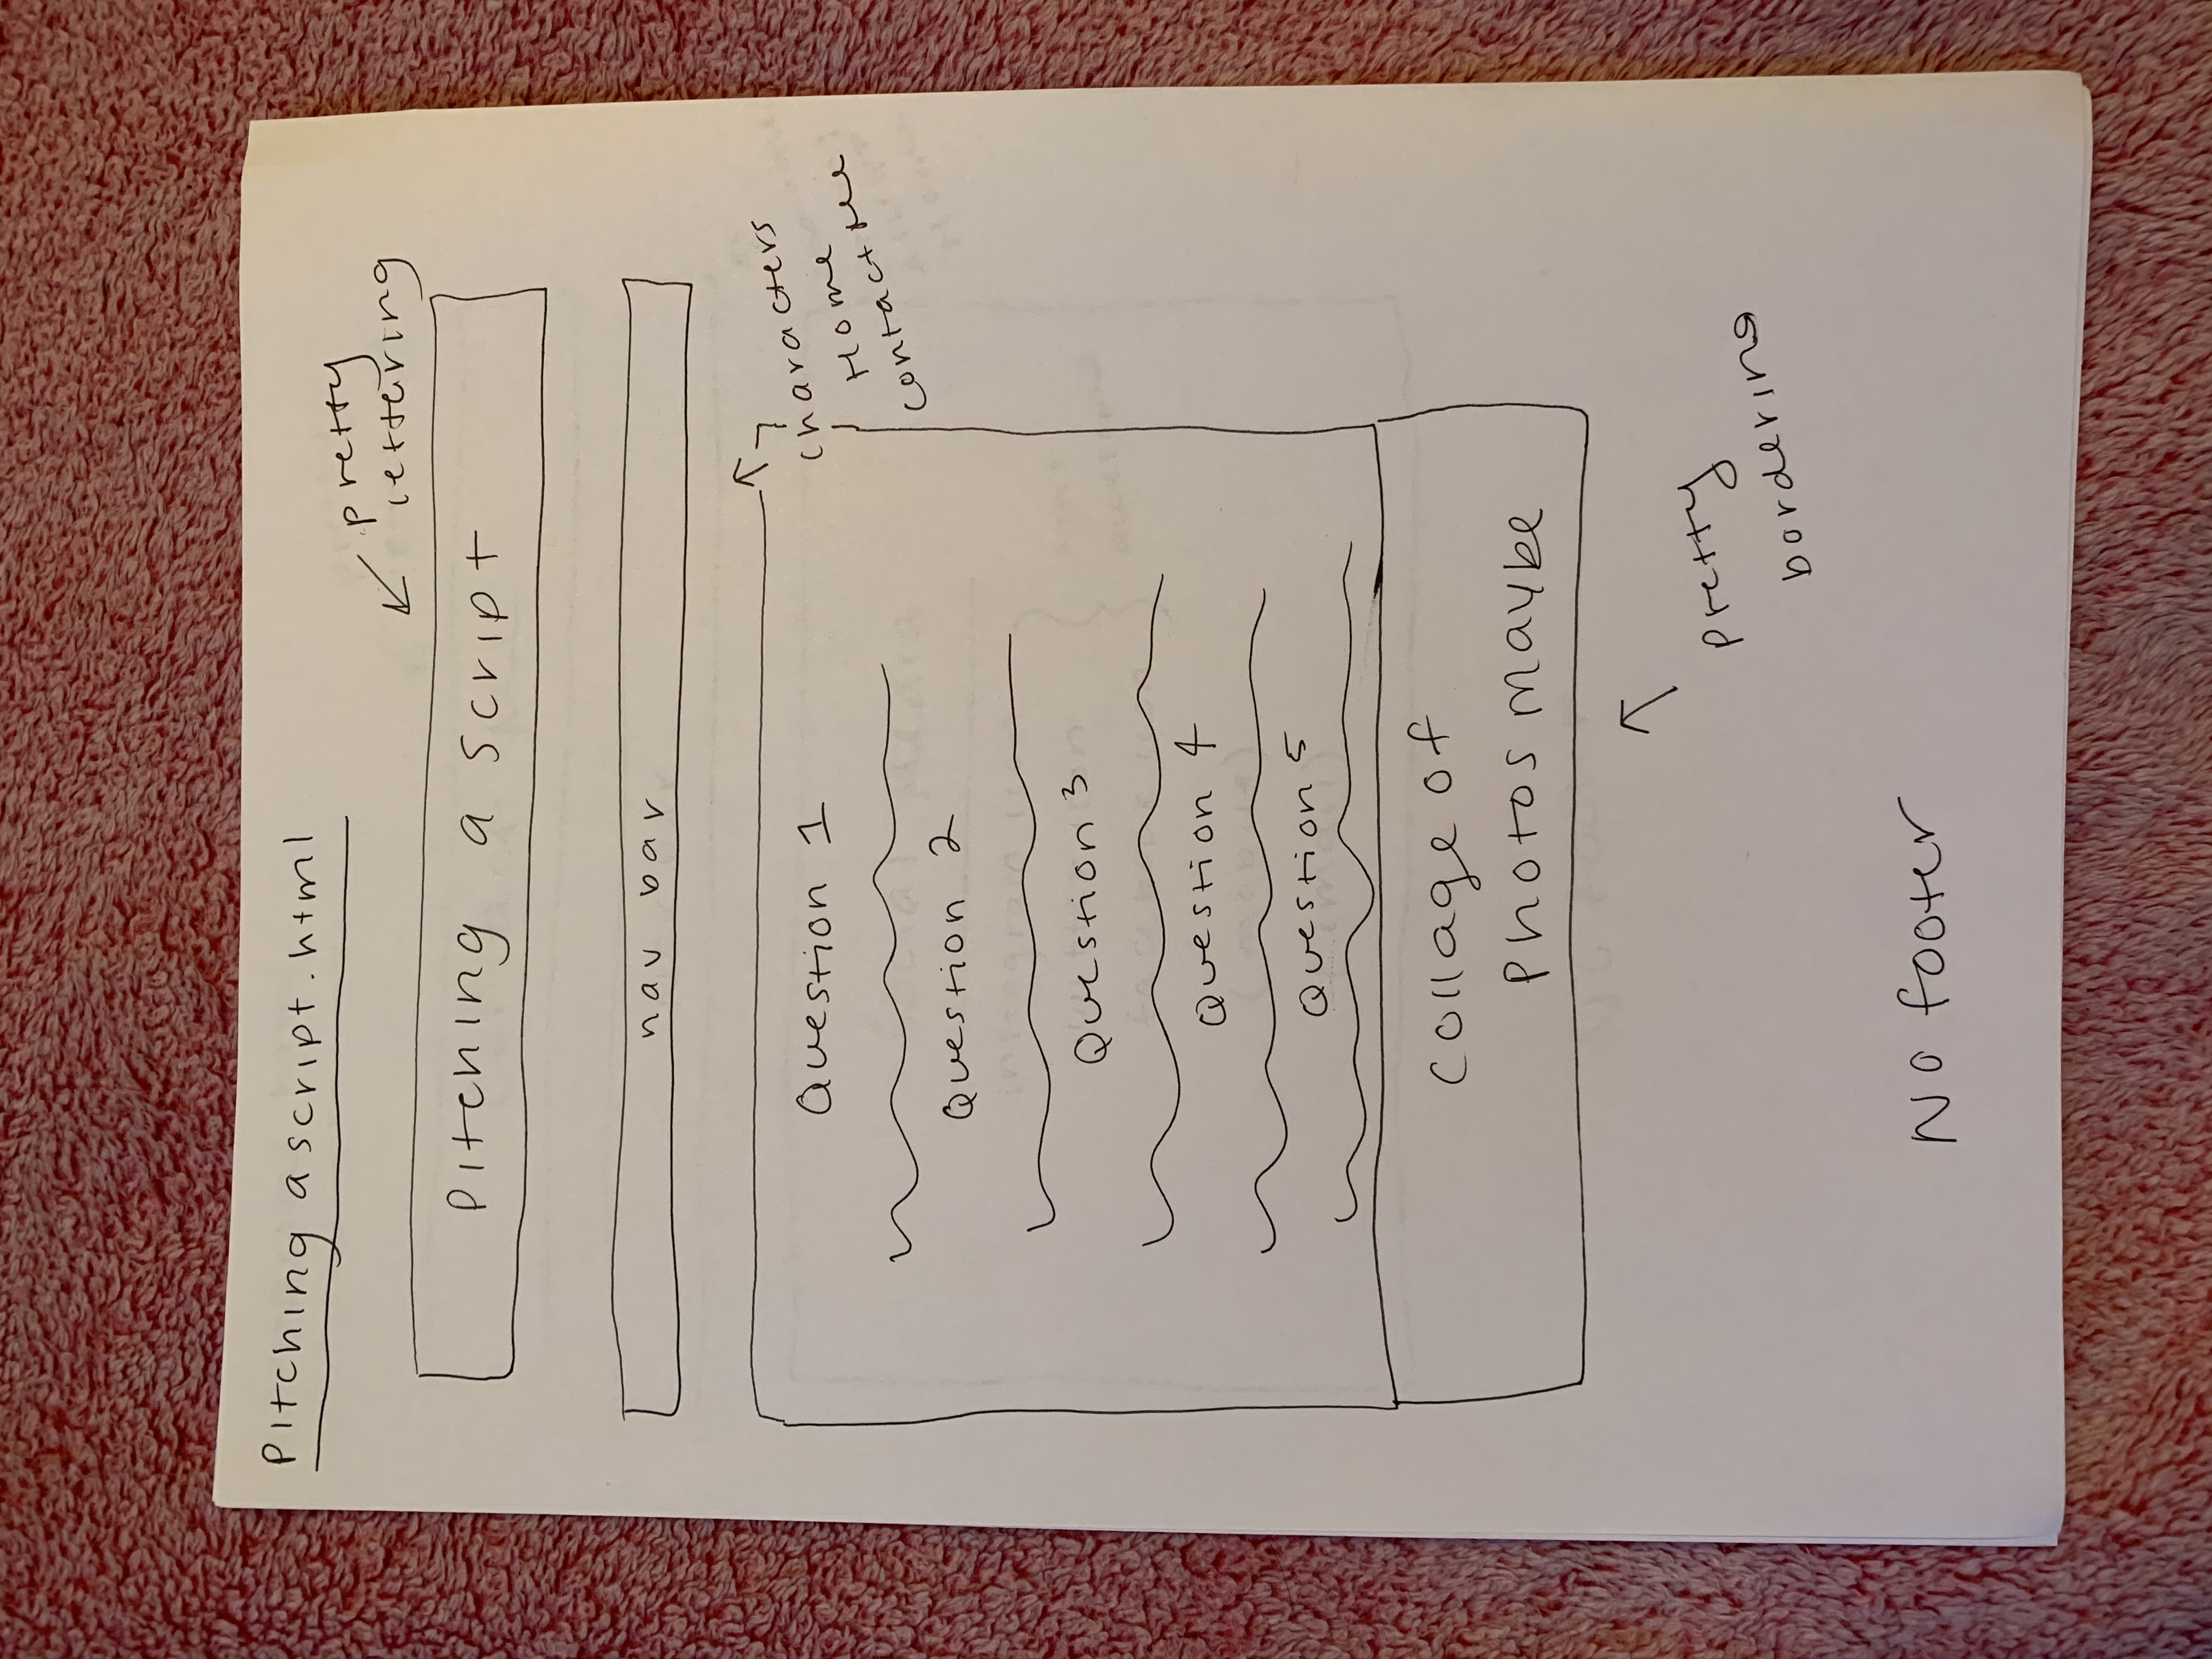 Pitching a script.html
pretty
lettering
Pitching a script
nav bar
characters
Home
contact me
Question 1
Question 2
Question 3
Question 4
Question 5
collage of
Photos maybe
pretty
bordering
No footer